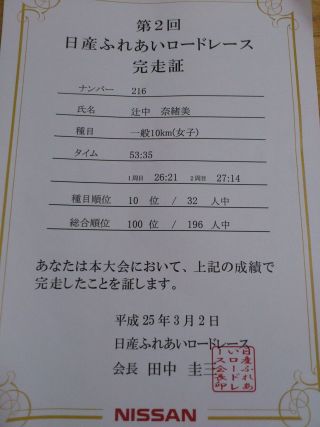 第2回
日産ふれあいロードレース
完走証
ナンバー 216
氏名 辻中 奈緒美
種目 一般10km(女子)
タイム 53:35
1周目 26:21 2周目 27:14
種目順位 10 位 / 32 人中
総合順位 100 位 / 196 人中
あなたは本大会において、上記の成績で
完走したことを証します。
平成25年3月2日
日産ふれあいロードレース
会長 田中 圭三
日産ふれあ
いロードレ
ース会長印
NISSAN